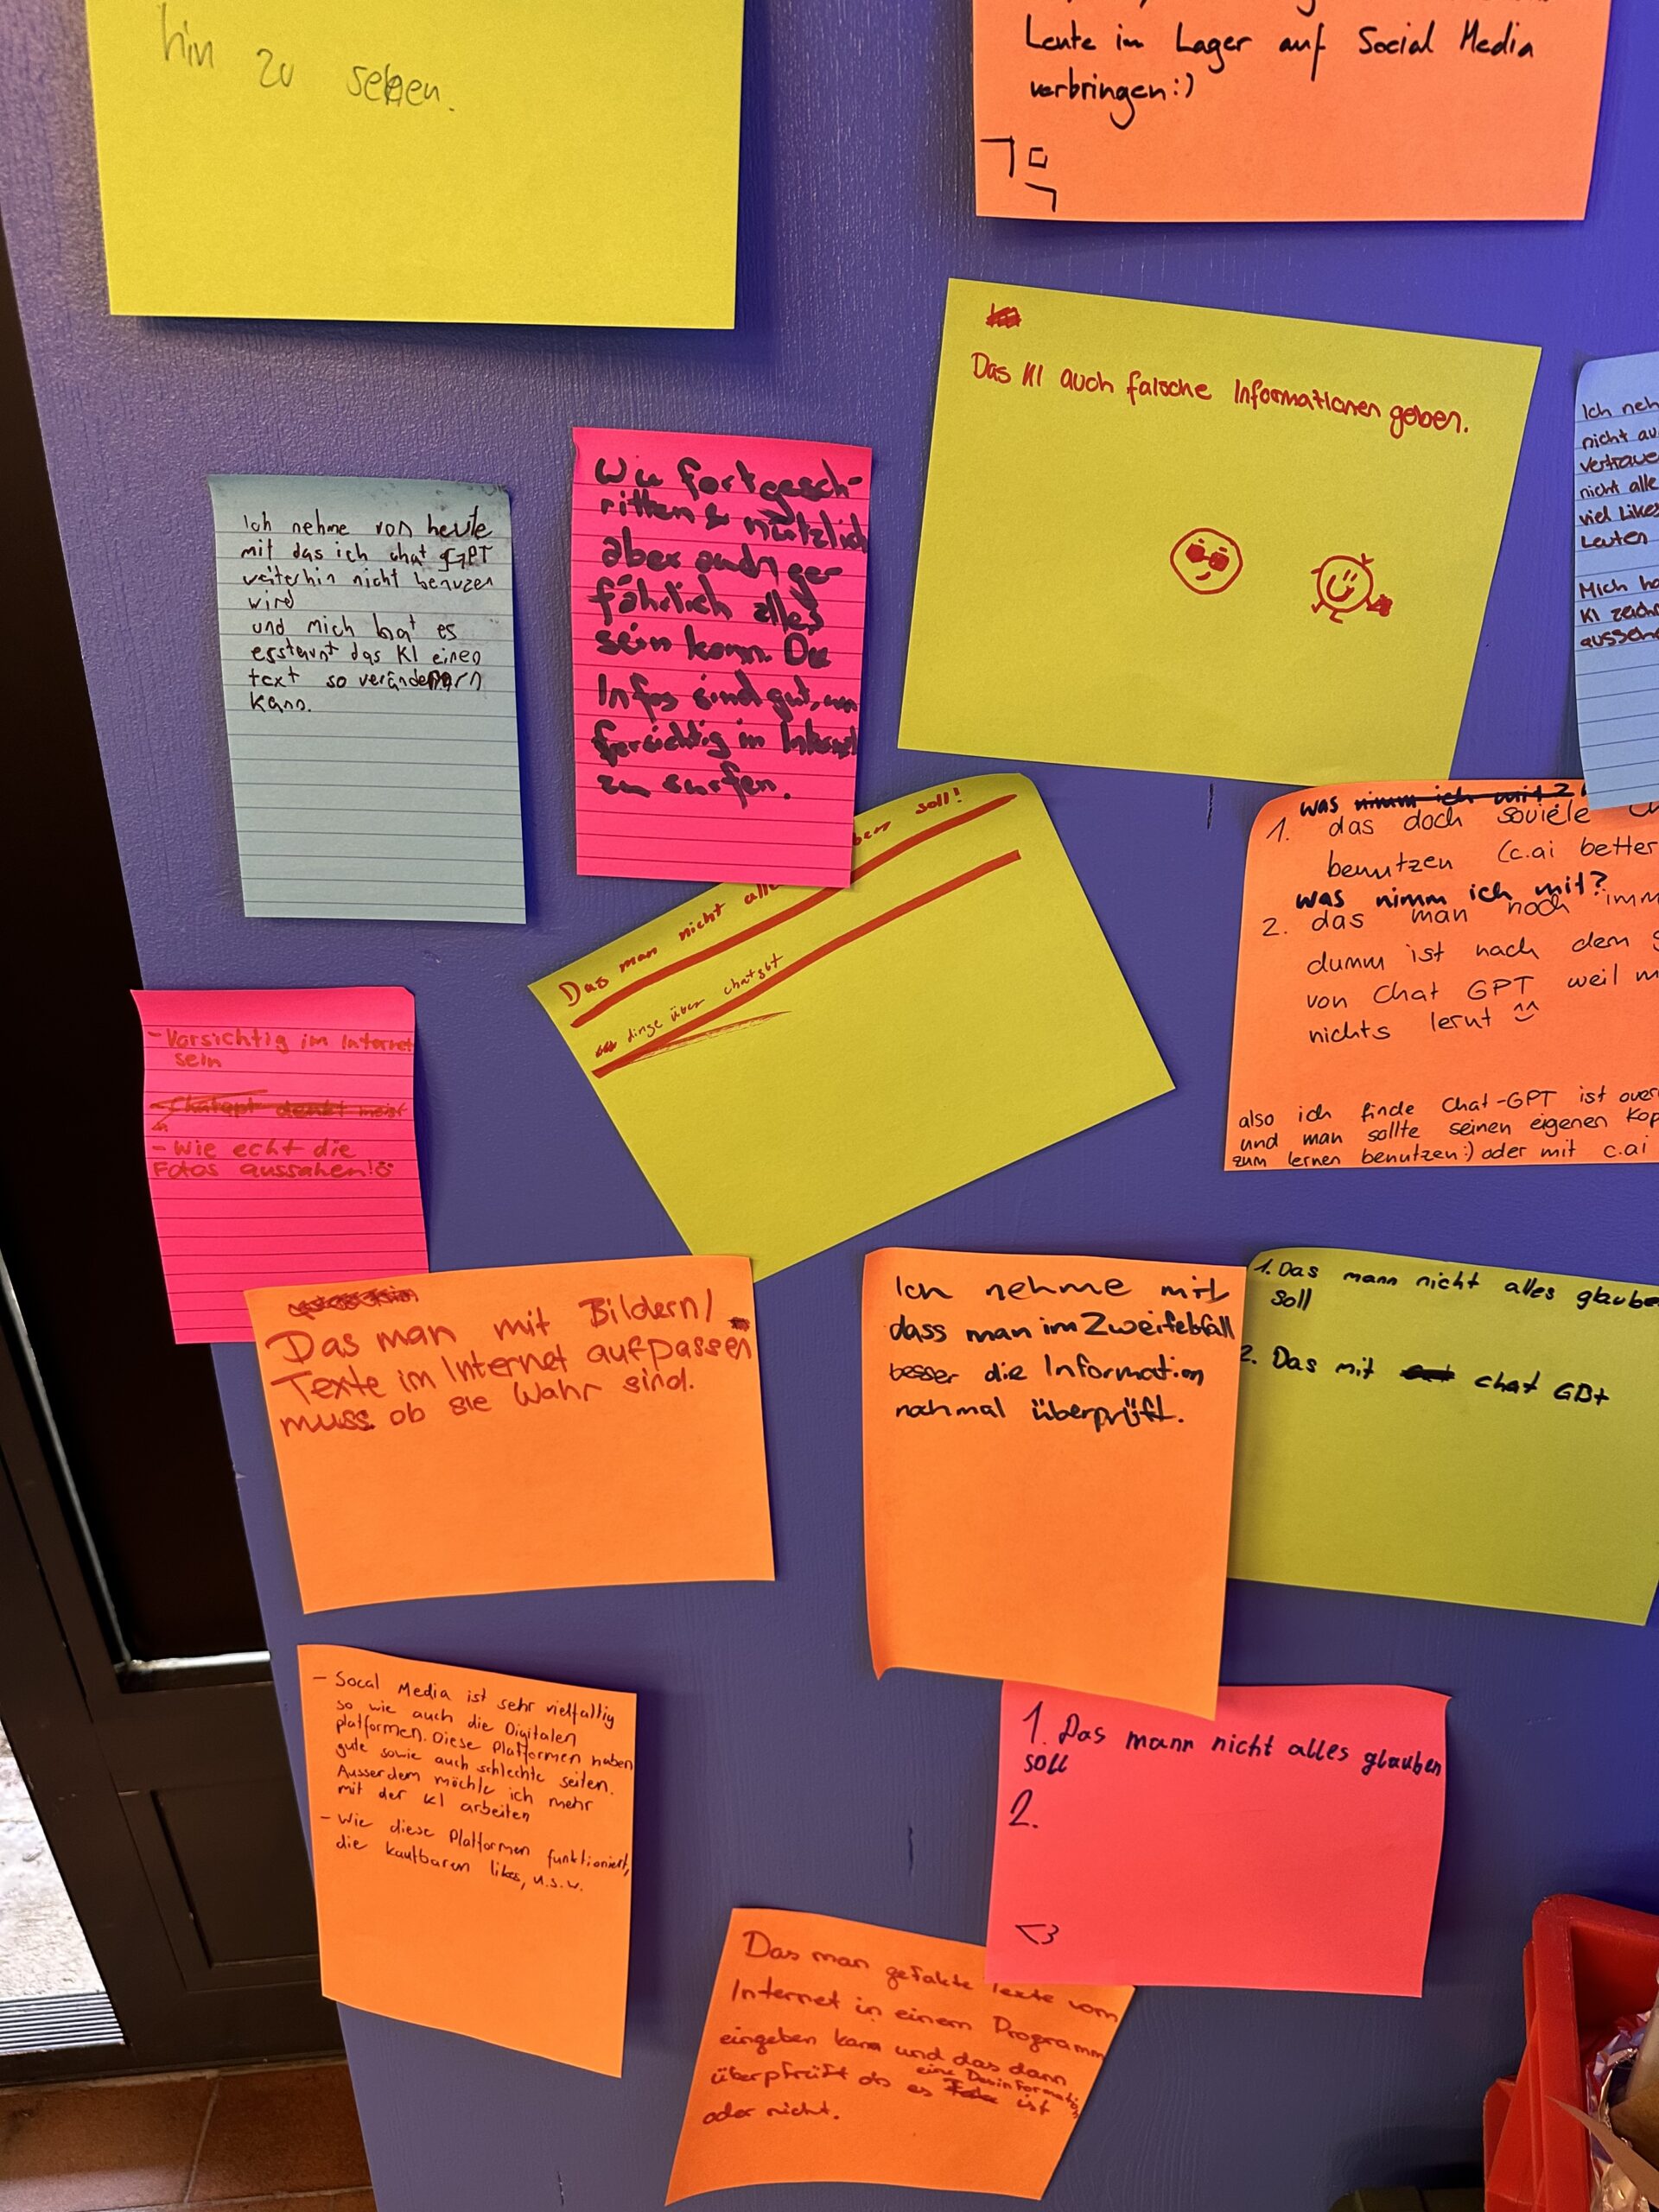 hin zu sehen.
Leute im Lager auf Social Media
verbringen:)
Das KI auch falsche Informationen geben.
Ich nehme von heute
mit das ich chat GPT
veiterhin nicht benuzen
wird
und mich hat es
erstaunt das KI einen
text so verändern
kann.
Wie fortgesch-
ritten & nützlich
aber auch ge-
fährlich alles
sein kann. Die
Infos sind gut, um
forsichtig in Internet
zu surfen.
Ich neh
nicht au
vertraue
nicht alle
viel Likes
Leuten
Mich ha
KI zeich
aussehe
Das man nicht alle ben soll!
dinge über chatgbt
was nimm ich mit?
1. das doch soviele
benutzen (c.ai better
was nimm ich mit?
2. das man noch imm
dumm ist nach dem
von Chat GPT weil m
nichts lernt ^^
also ich finde Chat-GPT ist over
und man sollte seinen eigenen Kop
zum lernen benutzen:) oder mit c.ai
- Vorsichtig im Internet
sein
- Chatgpt denkt meist
- Wie echt die
Fotos aussahen!
Das man mit Bildern/
Texte im Internet aufpassen
muss ob sie Wahr sind.
Ich nehme mit
dass man im Zweifelsfall
besser die Information
nochmal überprüft.
1. Das mann nicht alles glaube
soll
2. Das mit chat GBt
- Socal Media ist sehr vielfältig
so wie auch die Digitalen
platformen. Diese Platformen haben
gute sowie auch schlechte seiten.
Ausserdem möchte ich mehr
mit der KI arbeiten
- Wie diese Platformen funktioniert,
die kaufbaren likes, u.s.w.
1. Das mann nicht alles glauben
soll
2.
<3
Das man gefakte Texte vom
Internet in einem Programm
eingeben kann und das dann
eine Desinformation
überpfrüft ob es Fake ist
oder nicht.